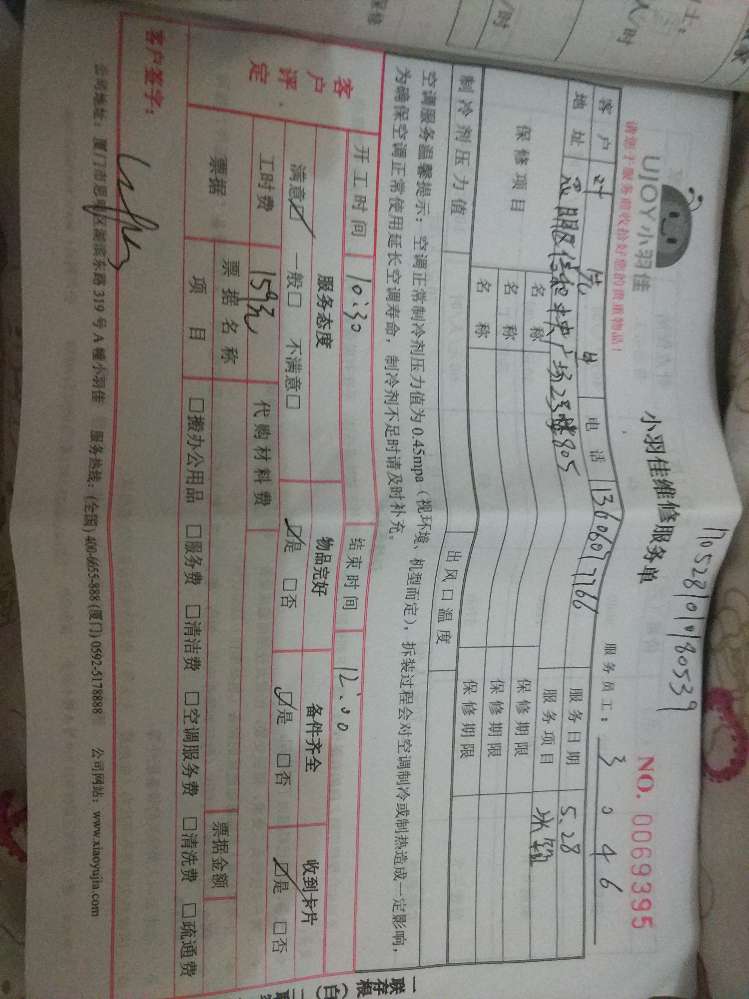 1705281010180539
UJOY小羽佳
小羽佳维修服务单
NO. 0069395
请您于服务前收拾好您的贵重物品！
服务员工： 3046
客户 叶先生 电话 13606077766 服务日期 5.28
地址 思明区信和中央广场23楼805 服务项目 冰箱
保修项目 名称 保修期限
名称 保修期限
名称 保修期限
制冷剂压力值 出风口温度
空调服务温馨提示：空调正常制冷剂压力值为0.45mpa（视环境、机型而定），拆装过程会对空调制冷或制热造成一定影响，
为确保空调正常使用延长空调寿命，制冷剂不足时请及时补充。
开工时间 10:30 结束时间 12:00
客户评定 服务态度 物品完好 备件齐全 收到卡片
满意☑ 一般□ 不满意□ ☑是 □否 ☑是 □否 ☑是 □否
工时费 159元 代购材料费
票据 票据名称 票据金额
项目 □搬办公用品 □服务费 □清洁费 □空调服务费 □清洗费 □疏通费
客户签字：
公司地址：厦门市思明区湖滨东路319号A幢小羽佳 服务热线：(全国) 400-6655-888 (厦门) 0592-5178888 公司网站：www.xiaoyujia.com